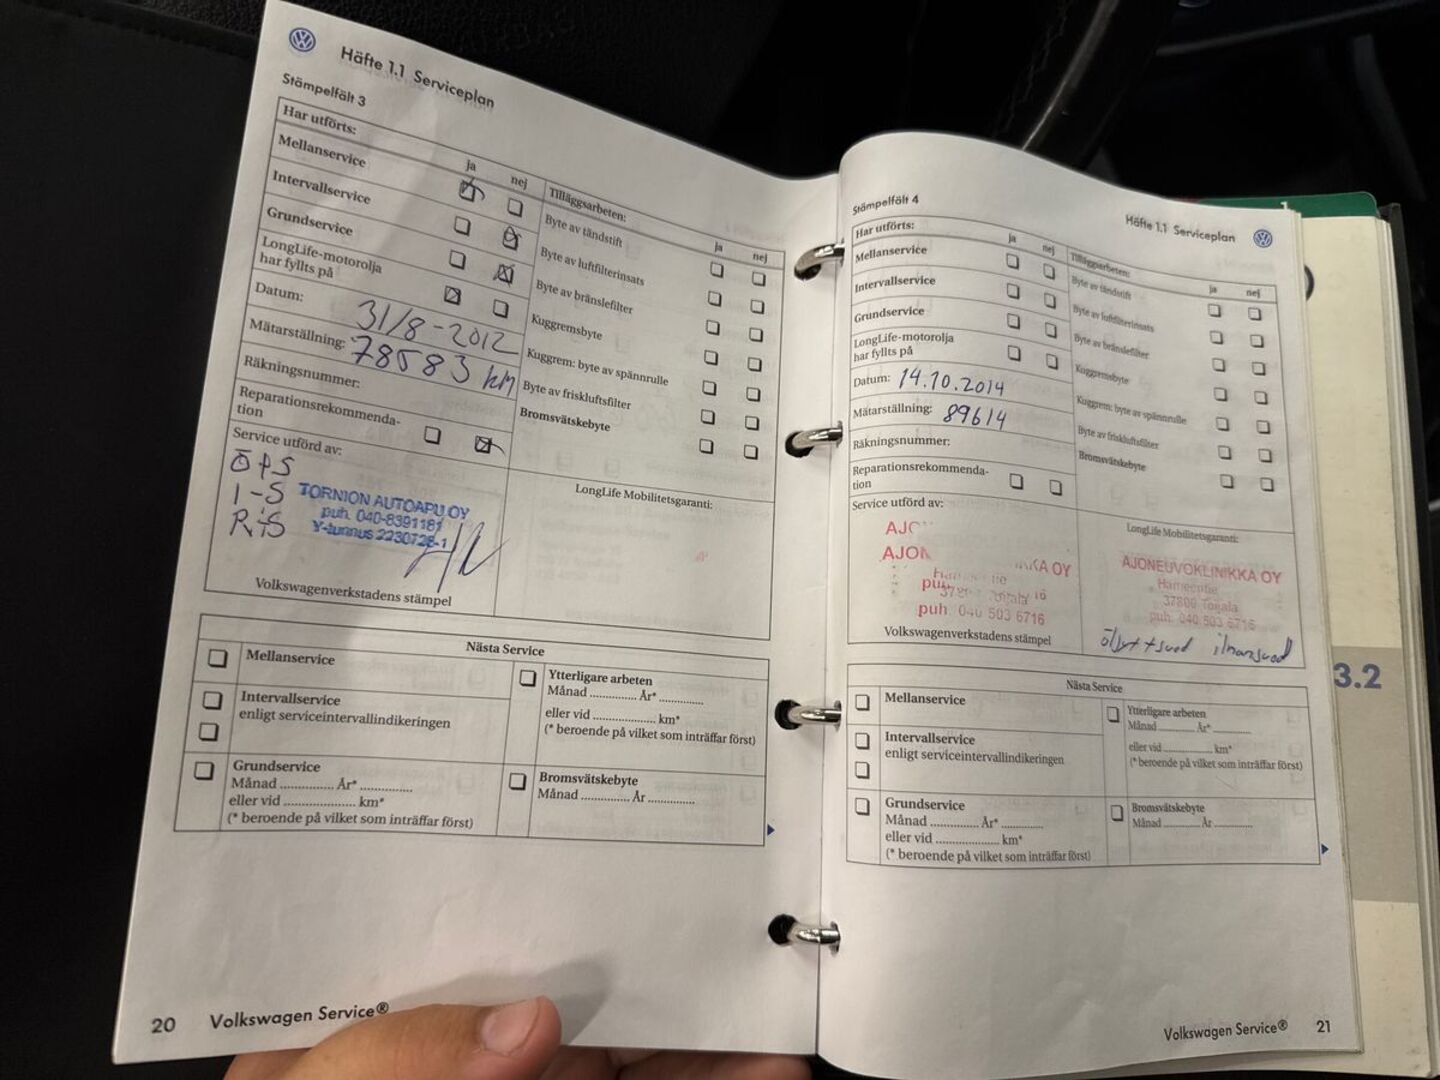 Häfte 1.1 Serviceplan
Stämpelfält 3
Har utförts:
ja nej
Mellanservice
Intervallservice
Grundservice
LongLife-motorolja
har fyllts på
Datum: 31/8-2012
Mätarställning: 78583 km
Räkningsnummer:
Reparationsrekommenda-
tion
Service utförd av:
TORNION AUTOAPU OY
puh. 040-8391181
Y-tunnus 2230728-1
Volkswagenverkstadens stämpel
Tilläggsarbeten:
ja nej
Byte av tändstift
Byte av luftfilterinsats
Byte av bränslefilter
Kuggremsbyte
Kuggrem: byte av spännrulle
Byte av friskluftsfilter
Bromsvätskebyte
LongLife Mobilitetsgaranti:
Nästa Service
Mellanservice
Intervallservice
enligt serviceintervallindikeringen
Grundservice
Månad .............. År* ..............
eller vid .................. km*
(* beroende på vilket som inträffar först)
Ytterligare arbeten
Månad ............ År* ............
eller vid ................ km*
(* beroende på vilket som inträffar först)
Bromsvätskebyte
Månad ............. År .............
20 Volkswagen Service®
Häfte 1.1 Serviceplan
Stämpelfält 4
Har utförts:
ja nej
Mellanservice
Intervallservice
Grundservice
LongLife-motorolja
har fyllts på
Datum: 14.10.2014
Mätarställning: 89614
Räkningsnummer:
Reparationsrekommenda-
tion
Service utförd av:
puh. 040 503 6716
Volkswagenverkstadens stämpel
Tilläggsarbeten:
ja nej
Byte av tändstift
Byte av luftfilterinsats
Byte av bränslefilter
Kuggremsbyte
Kuggrem: byte av spännrulle
Byte av friskluftsfilter
Bromsvätskebyte
LongLife Mobilitetsgaranti:
AJONEUVOKLINIKKA OY
Hämeentie
37800 Toijala
puh. 040 503 6716
Nästa Service
Mellanservice
Intervallservice
enligt serviceintervallindikeringen
Grundservice
Månad .............. År* ............
eller vid .................. km*
(* beroende på vilket som inträffar först)
Ytterligare arbeten
Månad ............ År* ............
eller vid ................ km*
(* beroende på vilket som inträffar först)
Bromsvätskebyte
Månad ............ År ............
Volkswagen Service® 21
3.2